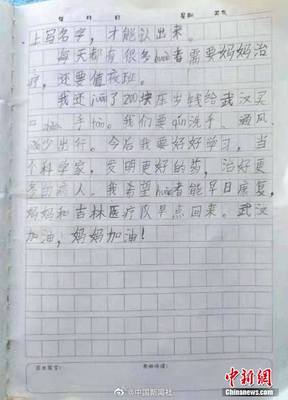 年 月 日 星期 天气
上写名字，才能认出来。
每天都有很多huàn者需要妈妈治
疗，还要值夜班。
我还juān了200块压岁钱给武汉买
口 手tào。我们要qín洗手、通风、
减少出行。今后我要好好学习，当
个科学家，发明更好的药，治好更
多的病人。我希望huàn者能早日康复，
妈妈和吉林医疗队早点回来。武汉
加油，妈妈加油！
家长签字： 教师评语：
@中国新闻社
中新网